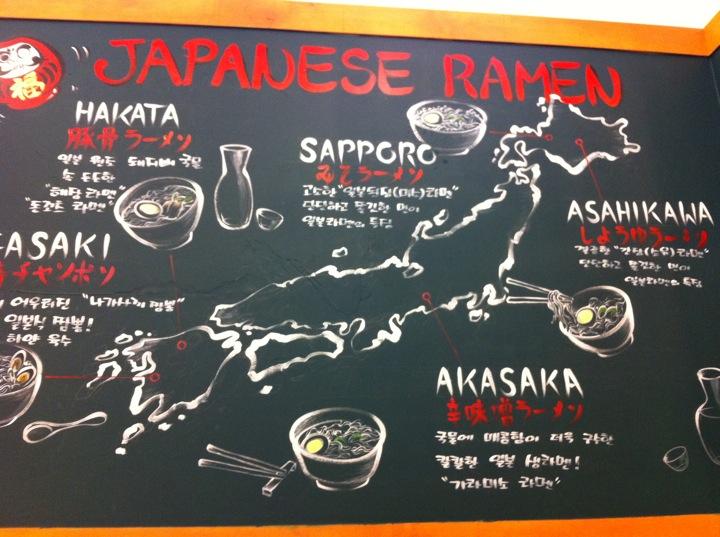 福
JAPANESE RAMEN
HAKATA
豚骨ラーメン
일본 원조 돼지뼈 국물
"해당라멘"
"돈코츠 라멘"
SAPPORO
みそラーメン
고소한 "일본된장(미소)라멘"
탄탄하고 쫄깃한 면이
일본라멘의 특징
ASAHIKAWA
しょうゆラーメン
깔끔한 "간장(소유)라멘"
탄탄하고 쫄깃한 면이
일본라멘의 특징
ASAKI
チャンポン
어우러진 "나가사끼 짬뽕"
일본식 짬뽕!
하얀 육수
AKASAKA
辛味噌ラーメン
국물에 매콤함이 더욱 강한
칼칼한 일본 생라멘!
"가라미소 라멘"